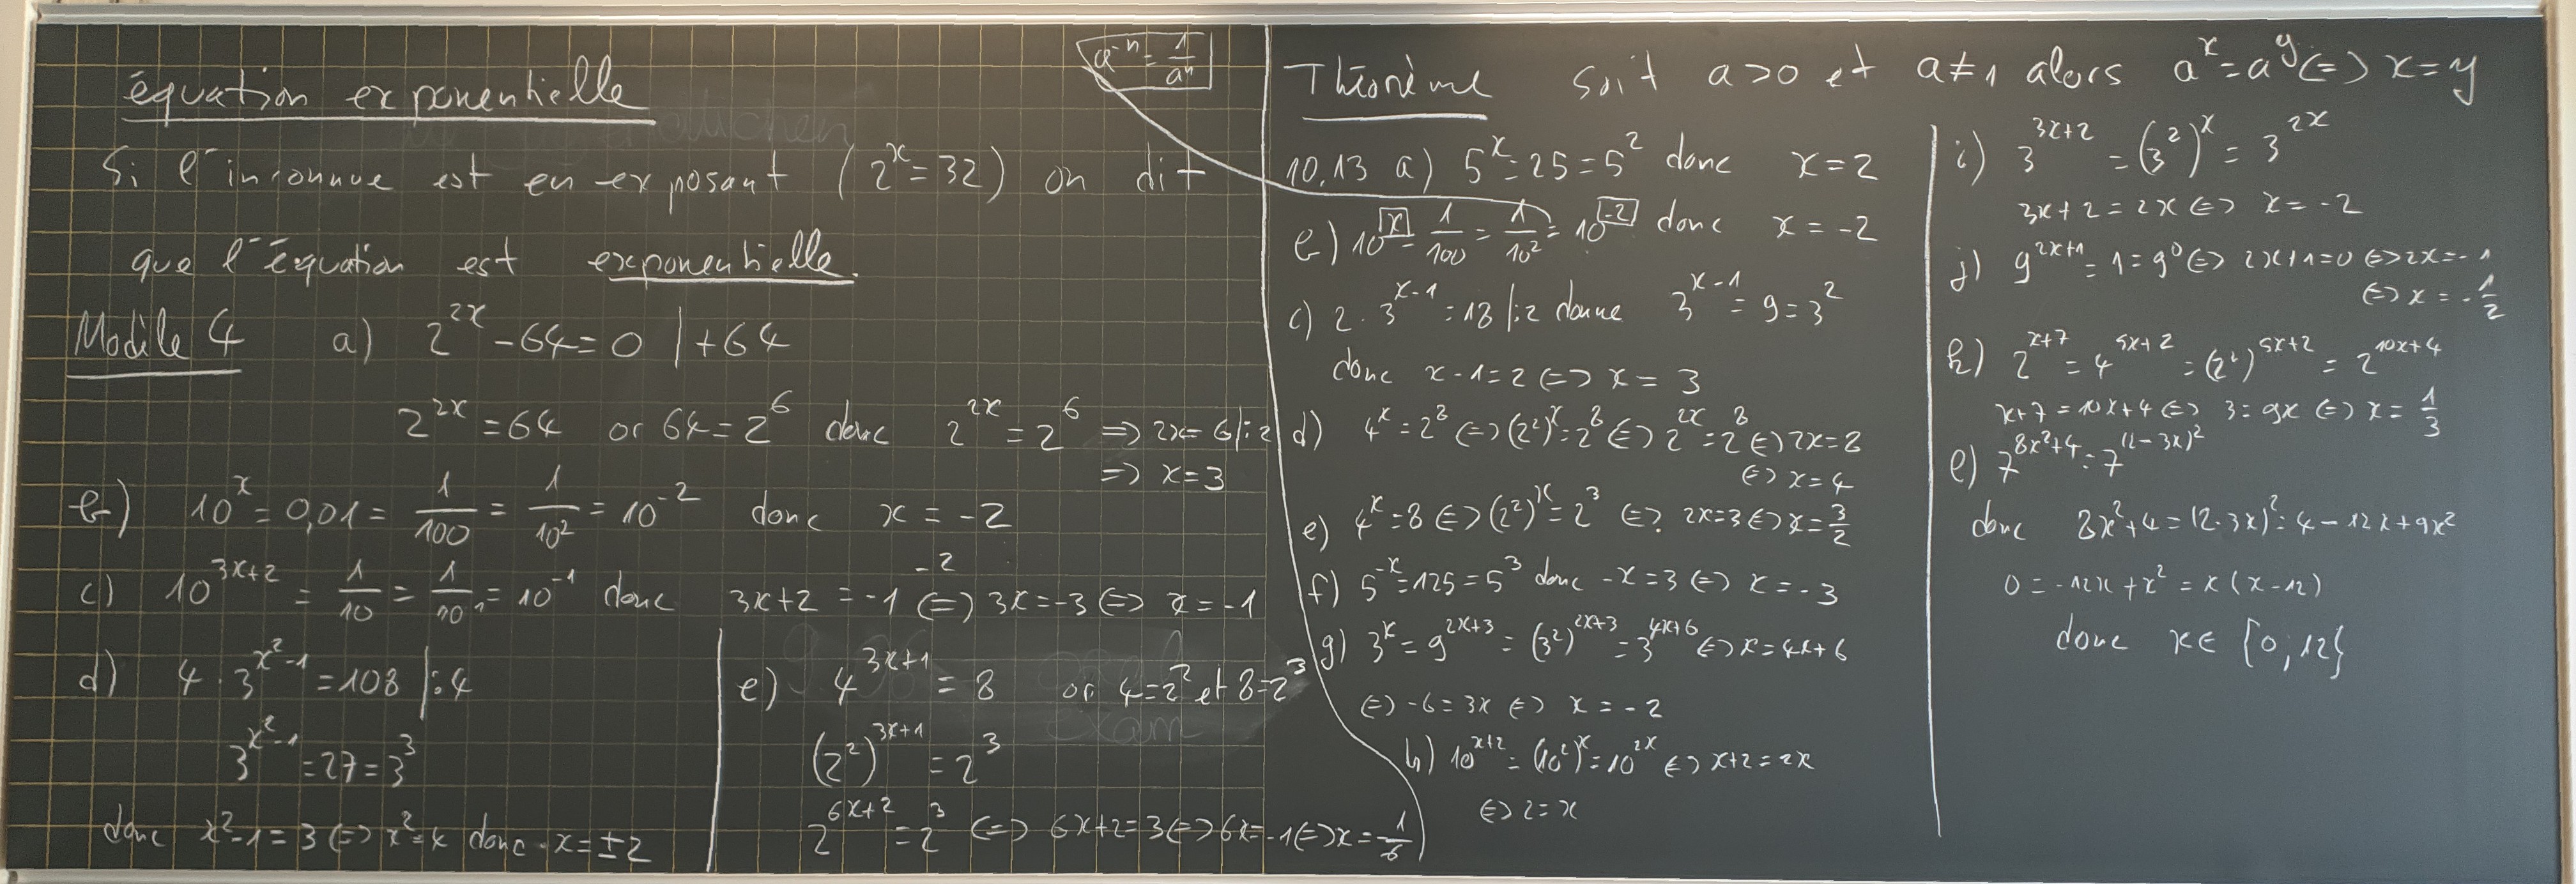 équation exponentielle
a⁻ⁿ = 1/aⁿ
Si l'inconnue est en exposant (2ˣ = 32) on dit
que l'équation est exponentielle.
Modèle 4 a) 2²ˣ - 64 = 0 | +64
2²ˣ = 64 or 64 = 2⁶ donc 2²ˣ = 2⁶ => 2x = 6 |:2
=> x = 3
b) 10ˣ = 0,01 = 1/100 = 1/10² = 10⁻² donc x = -2
c) 10^(3x+2) = 1/10 = 1/10¹ = 10⁻¹ donc 3x+2 = -1 <=>^(-2) 3x = -3 <=> x = -1
d) 4 · 3^(x²-1) = 108 |:4
3^(x²-1) = 27 = 3³
donc x²-1 = 3 <=> x² = 4 donc x = ±2
e) 4^(3x+1) = 8 or 4 = 2² et 8 = 2³
(2²)^(3x+1) = 2³
2^(6x+2) = 2³ <=> 6x+2 = 3 <=> 6x = -1 <=> x = -1/6
Théorème Soit a > 0 et a ≠ 1 alors aˣ = aʸ <=> x = y
10.13 a) 5ˣ = 25 = 5² donc x = 2
b) 10ˣ = 1/100 = 1/10² = 10⁻² donc x = -2
c) 2 · 3^(x-1) = 18 |:2 donne 3^(x-1) = 9 = 3²
donc x-1 = 2 <=> x = 3
d) 4ˣ = 2⁸ <=> (2²)ˣ = 2⁸ <=> 2²ˣ = 2⁸ <=> 2x = 8
<=> x = 4
e) 4ˣ = 8 <=> (2²)ˣ = 2³ <=> 2x = 3 <=> x = 3/2
f) 5⁻ˣ = 125 = 5³ donc -x = 3 <=> x = -3
g) 3ˣ = 9^(2x+3) = (3²)^(2x+3) = 3^(4x+6) <=> x = 4x+6
<=> -6 = 3x <=> x = -2
h) 10^(x+2) = (10²)ˣ = 10²ˣ <=> x+2 = 2x
<=> 2 = x
i) 3^(3x+2) = (3²)ˣ = 3²ˣ
3x+2 = 2x <=> x = -2
j) 9^(2x+1) = 1 = 9⁰ <=> 2x+1 = 0 <=> 2x = -1
<=> x = -1/2
k) 2^(x+7) = 4^(5x+2) = (2²)^(5x+2) = 2^(10x+4)
x+7 = 10x+4 <=> 3 = 9x <=> x = 1/3
l) 7^(8x²+4) = 7^((2-3x)²)
donc 8x²+4 = (2-3x)² = 4 - 12x + 9x²
0 = -12x + x² = x(x-12)
donc x ∈ {0; 12}